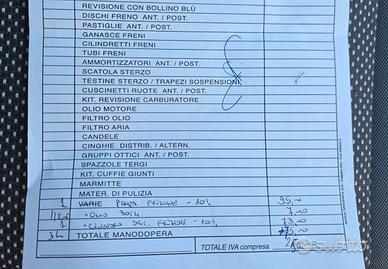 REVISIONE CON BOLLINO BLÙ
DISCHI FRENO ANT. / POST.
PASTIGLIE ANT. / POST.
GANASCE FRENI
CILINDRETTI FRENI
TUBI FRENI
AMMORTIZZATORI ANT. / POST.
SCATOLA STERZO
TESTINE STERZO / TRAPEZI SOSPENSIONI
CUSCINETTI RUOTE ANT. / POST.
KIT. REVISIONE CARBURATORE
OLIO MOTORE
FILTRO OLIO
FILTRO ARIA
CANDELE
CINGHIE DISTRIB. / ALTERN.
GRUPPI OTTICI ANT. / POST.
SPAZZOLE TERGI
KIT. CUFFIE GIUNTI
MARMITTE
MATER. DI PULIZIA
1 VARIE FRIZIONE 95,00
OLIO 7,00
1 CILINDRO FRIZIONE 73
3 TOTALE MANODOPERA
TOTALE IVA compresa
subito